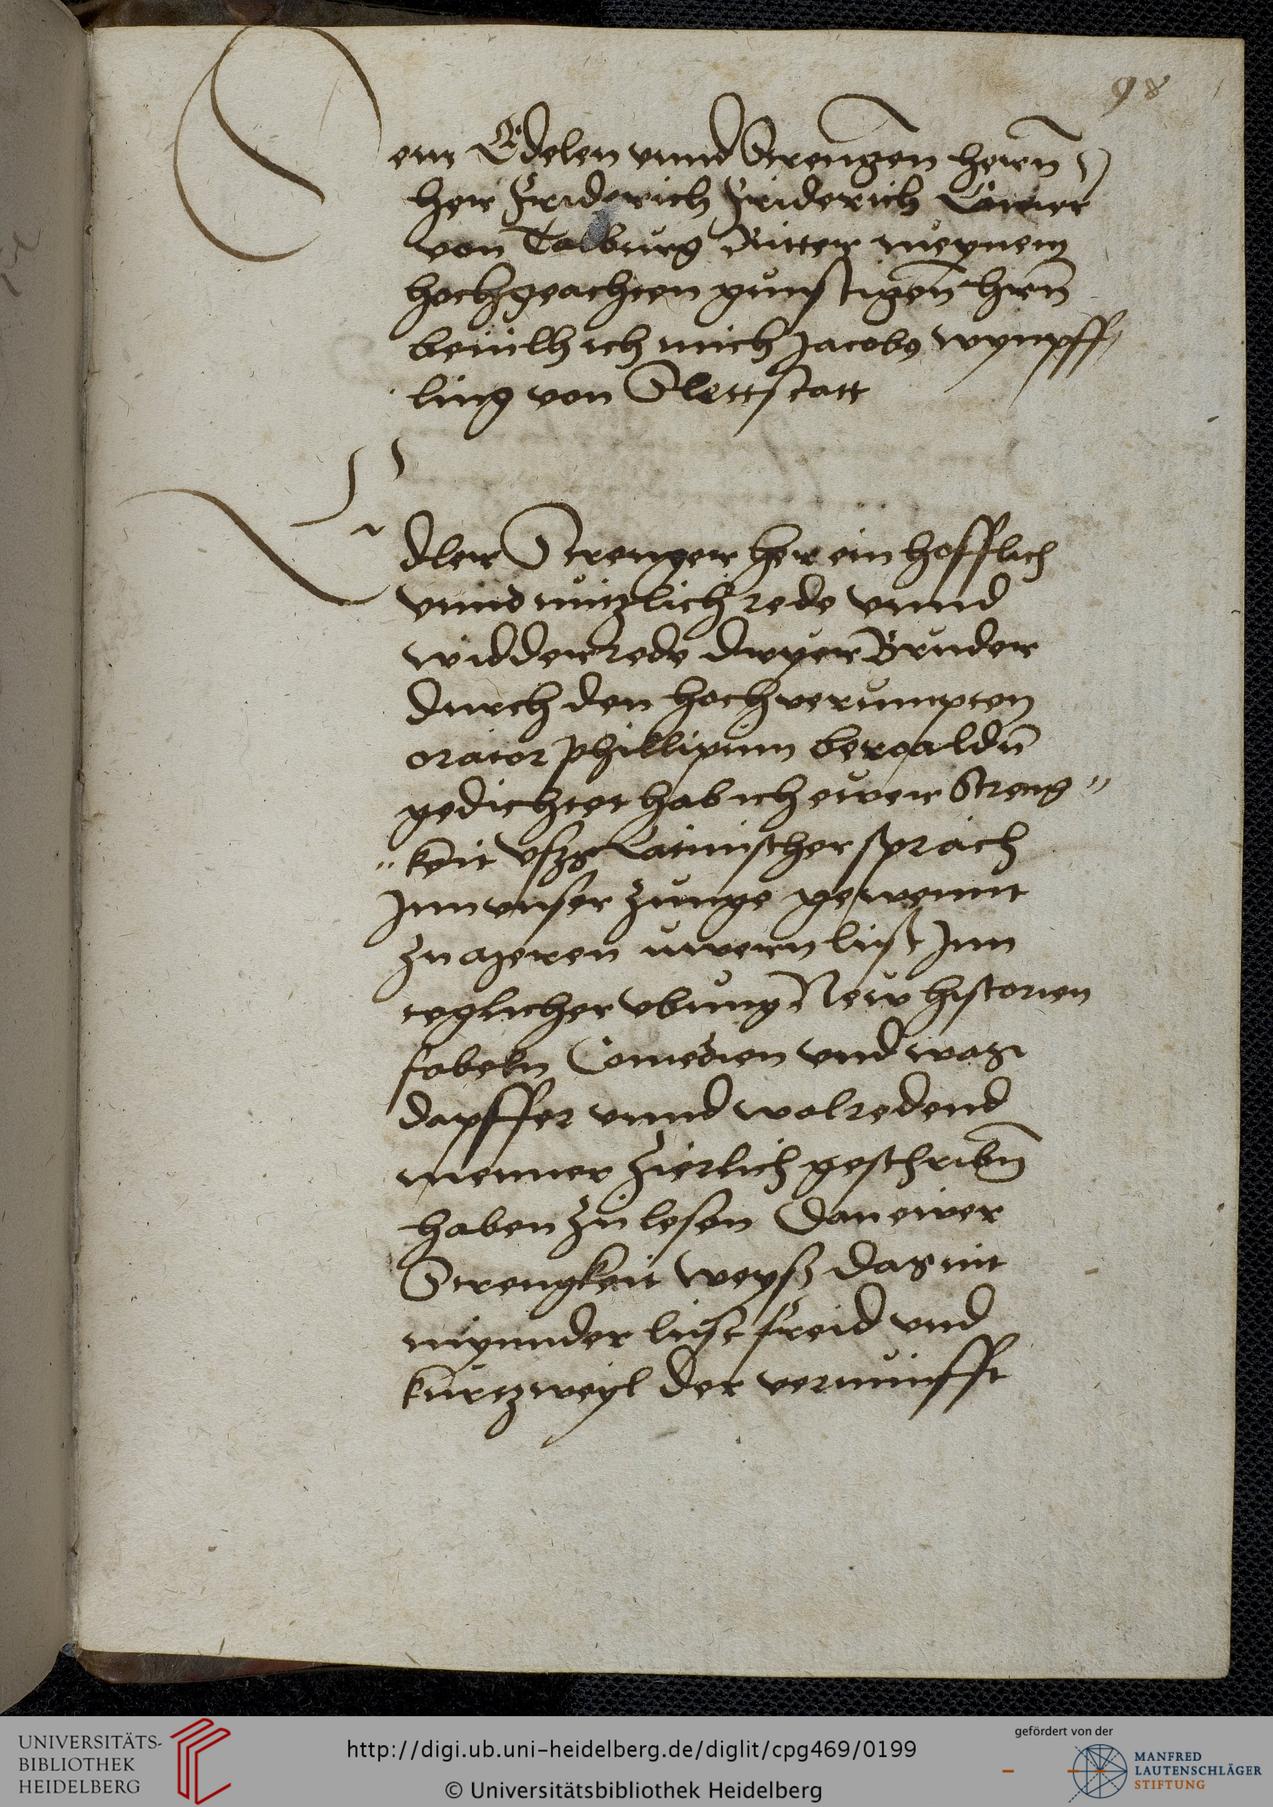 98
Dem Edelen vnnd Strengen hern̄
her Friderich Friderich Kämer
von Talburg Ritter meynem
hochgeachten gunstigen̄ hrn̄
beuilh ich mich Jacobꝰ wympff
ling von Slettstatt
Edler Strenger her ein hofflich
vnnd nutzlich rede vnnd
widderrede dryer Bruder
durch den hochverumpten
orator phillipum beroaldū
gedichtet hab ich ewer Streng"
"keit vsz Latinischer sprach
Jnn vnser zunge gewennt
zu meren uwern lust Jnn
teglicher vbung New historien
fabeln Comedien vnd was
dapffer vnnd wolredend
menner zierlich geschribn̄
haben zu lesen Dan ewer
Strengkeit weysz das nit
mynnder lust freid vnd
kurtzweyl der vernunfft
UNIVERSITÄTS-
BIBLIOTHEK
HEIDELBERG
http://digi.ub.uni-heidelberg.de/diglit/cpg469/0199
© Universitätsbibliothek Heidelberg
gefördert von der
MANFRED
LAUTENSCHLÄGER
STIFTUNG